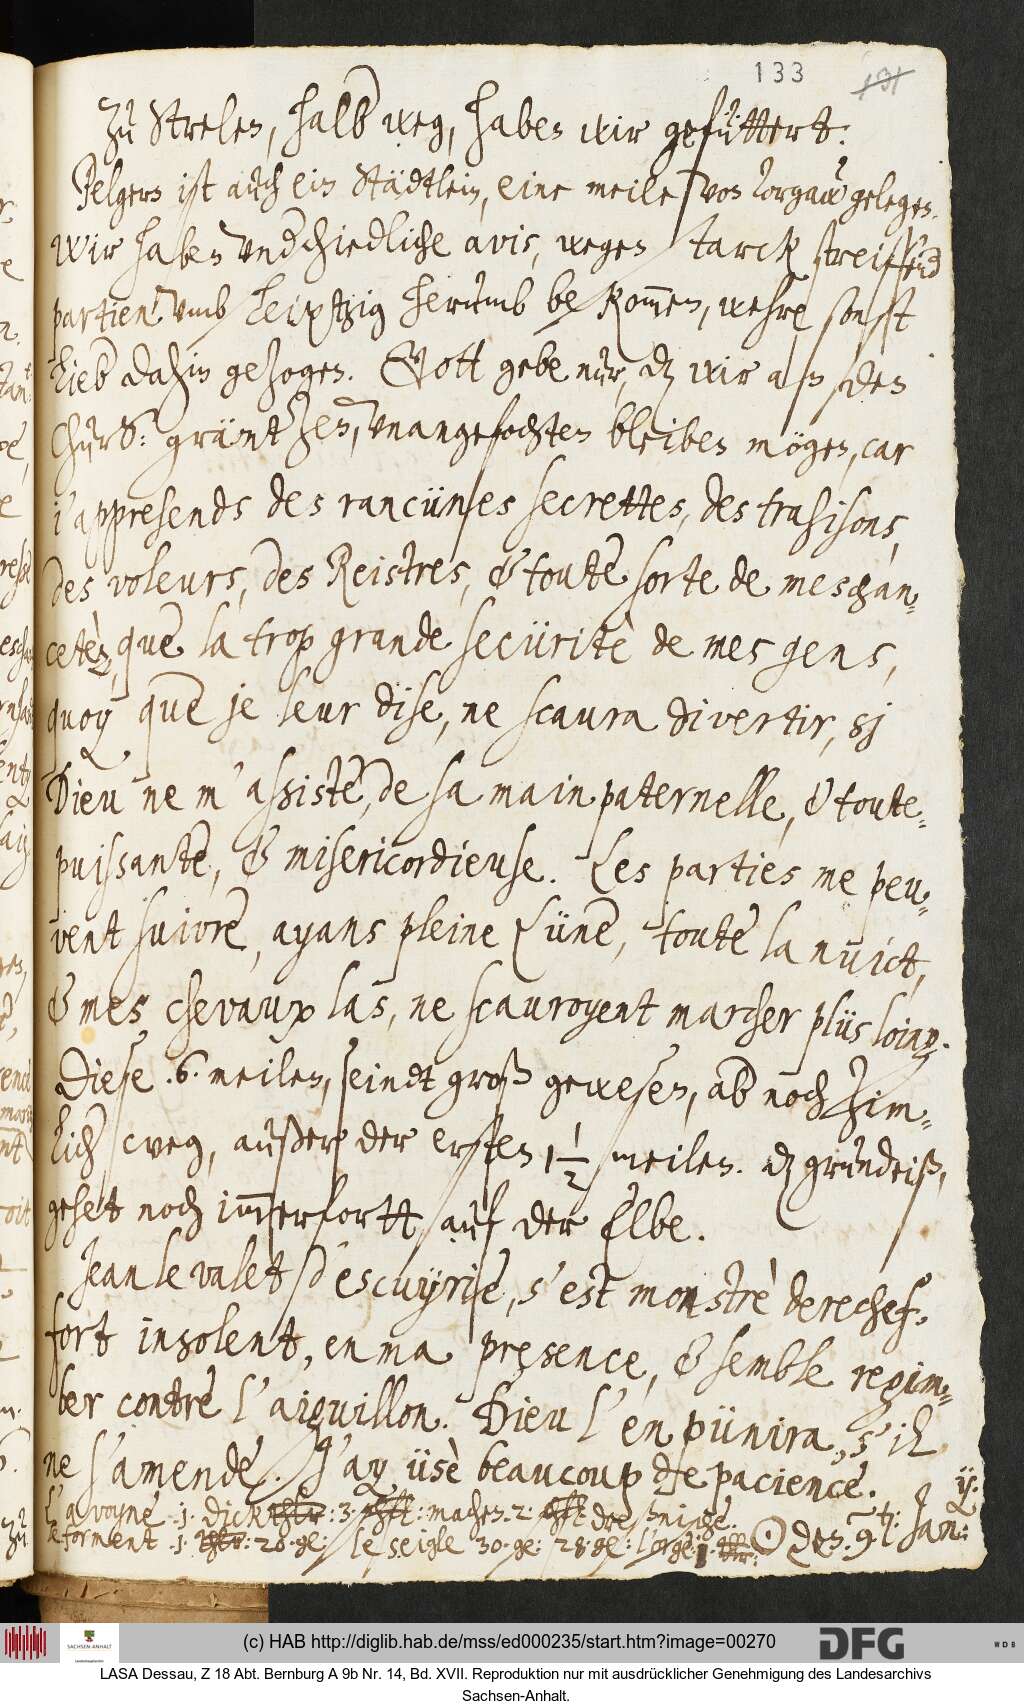 133 131
Zu Strelen, halb weg, haben wir gefüttert:
Belgern ist auch ein Städtlein, eine meile von Torgaw gelegen.
Wir haben undschiedliche avis, wegen starck streiffend
partien umb Leiptzig herumb bekommen, wehre sonst
lieb dahin gezogen. Gott gebe nur, dz wir an den
ChurS: gräntzen, unangefochten bleiben mögen, car
j'apprehends des rancünes secrettes, des trahisons,
des voleurs, des Reistres, & toute sorte de meschan-
cetèz, que la trop grande secüritè de mes gens,
quoy que je leur dise, ne scaura divertir, si
Dieu ne m'assiste, de sa main paternelle, & toute-
puissante, & misericordieuse. Les parties me peu-
vent suivre, ayans pleine Lüne, toute la nuict,
& mes chevaux las, ne scauroyent marcher plüs loing.
Diese .6. meilen, seindt groß gewesen, ab noch zim-
lich weg, außer der ersten 1 1/2 meilen. dz grundeiß,
gehet noch immerfortt auf der Elbe.
Jean le valet d'escuyrie, s'est monstrè derechef
fort insolent, en ma presence, & semble regim-
ber contre l'aiguillon. Dieu l'en pünira, s'il
ne s'amende. J'ay üsè beaucoup de pacience.
L'avoyne .1. dick : 3. machen. 2. dreßnige.
Le forment .1. 20 · ge: le seigle 30 · ge: 28 · ge: l'orge 1. ☉ den. 9.t: Jan: 
(c) HAB http://diglib.hab.de/mss/ed000235/start.htm?image=00270
DFG WDB
SACHSEN-ANHALT
LASA Dessau, Z 18 Abt. Bernburg A 9b Nr. 14, Bd. XVII. Reproduktion nur mit ausdrücklicher Genehmigung des Landesarchivs
Sachsen-Anhalt.